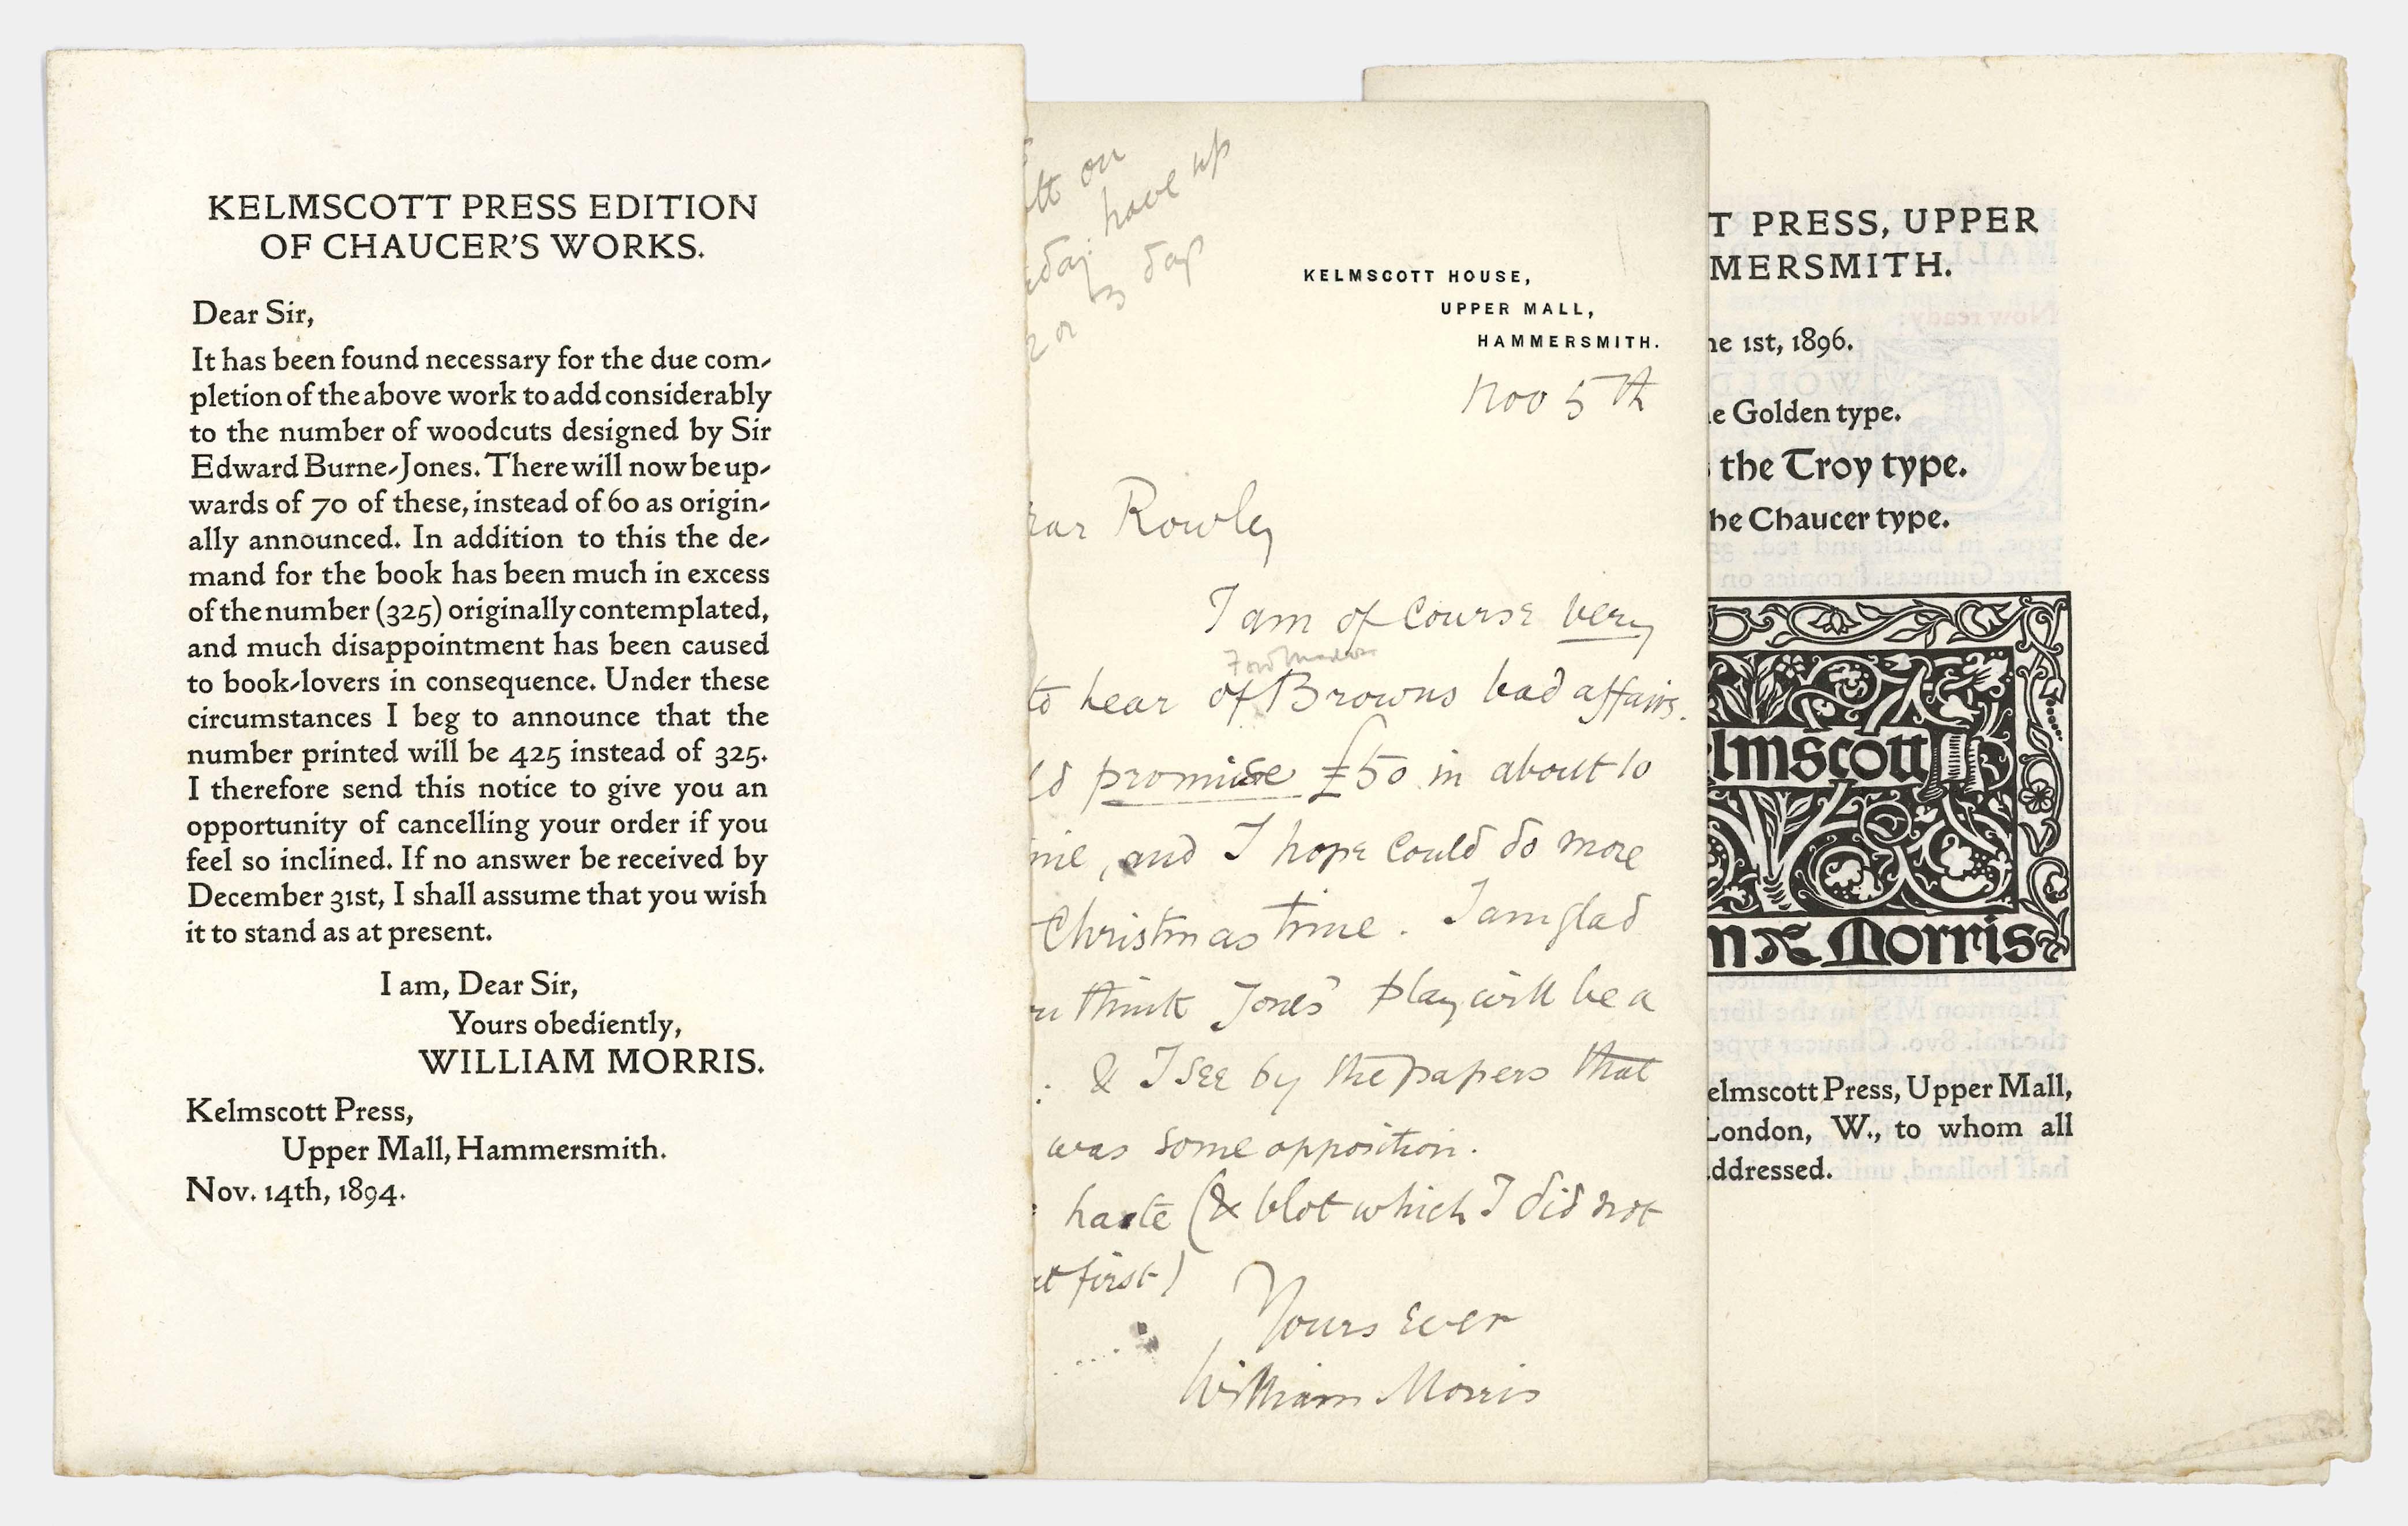 KELMSCOTT PRESS EDITION
OF CHAUCER'S WORKS.
Dear Sir,
It has been found necessary for the due com-
pletion of the above work to add considerably
to the number of woodcuts designed by Sir
Edward Burne-Jones. There will now be up-
wards of 70 of these, instead of 60 as origin-
ally announced. In addition to this the de-
mand for the book has been much in excess
of the number (325) originally contemplated,
and much disappointment has been caused
to book-lovers in consequence. Under these
circumstances I beg to announce that the
number printed will be 425 instead of 325.
I therefore send this notice to give you an
opportunity of cancelling your order if you
feel so inclined. If no answer be received by
December 31st, I shall assume that you wish
it to stand as at present.
I am, Dear Sir,
Yours obediently,
WILLIAM MORRIS.
Kelmscott Press,
Upper Mall, Hammersmith.
Nov. 14th, 1894.
on
have up
2 or 3 days
KELMSCOTT HOUSE,
UPPER MALL,
HAMMERSMITH.
Nov 5th
Rowley
I am of course very
Ford Madox
to hear of Browns bad affairs.
promise £50 in about 10
, and I hope could do more
Christmas time. I am glad
think Jones' play will be a
: & I see by the papers that
was some opposition.
haste (& blot which I did not
at first)
Yours ever
William Morris
T PRESS, UPPER
MERSMITH.
ne 1st, 1896.
e Golden type.
the Troy type.
he Chaucer type.
lmscott
m Morris
elmscott Press, Upper Mall,
London, W., to whom all
ddressed.